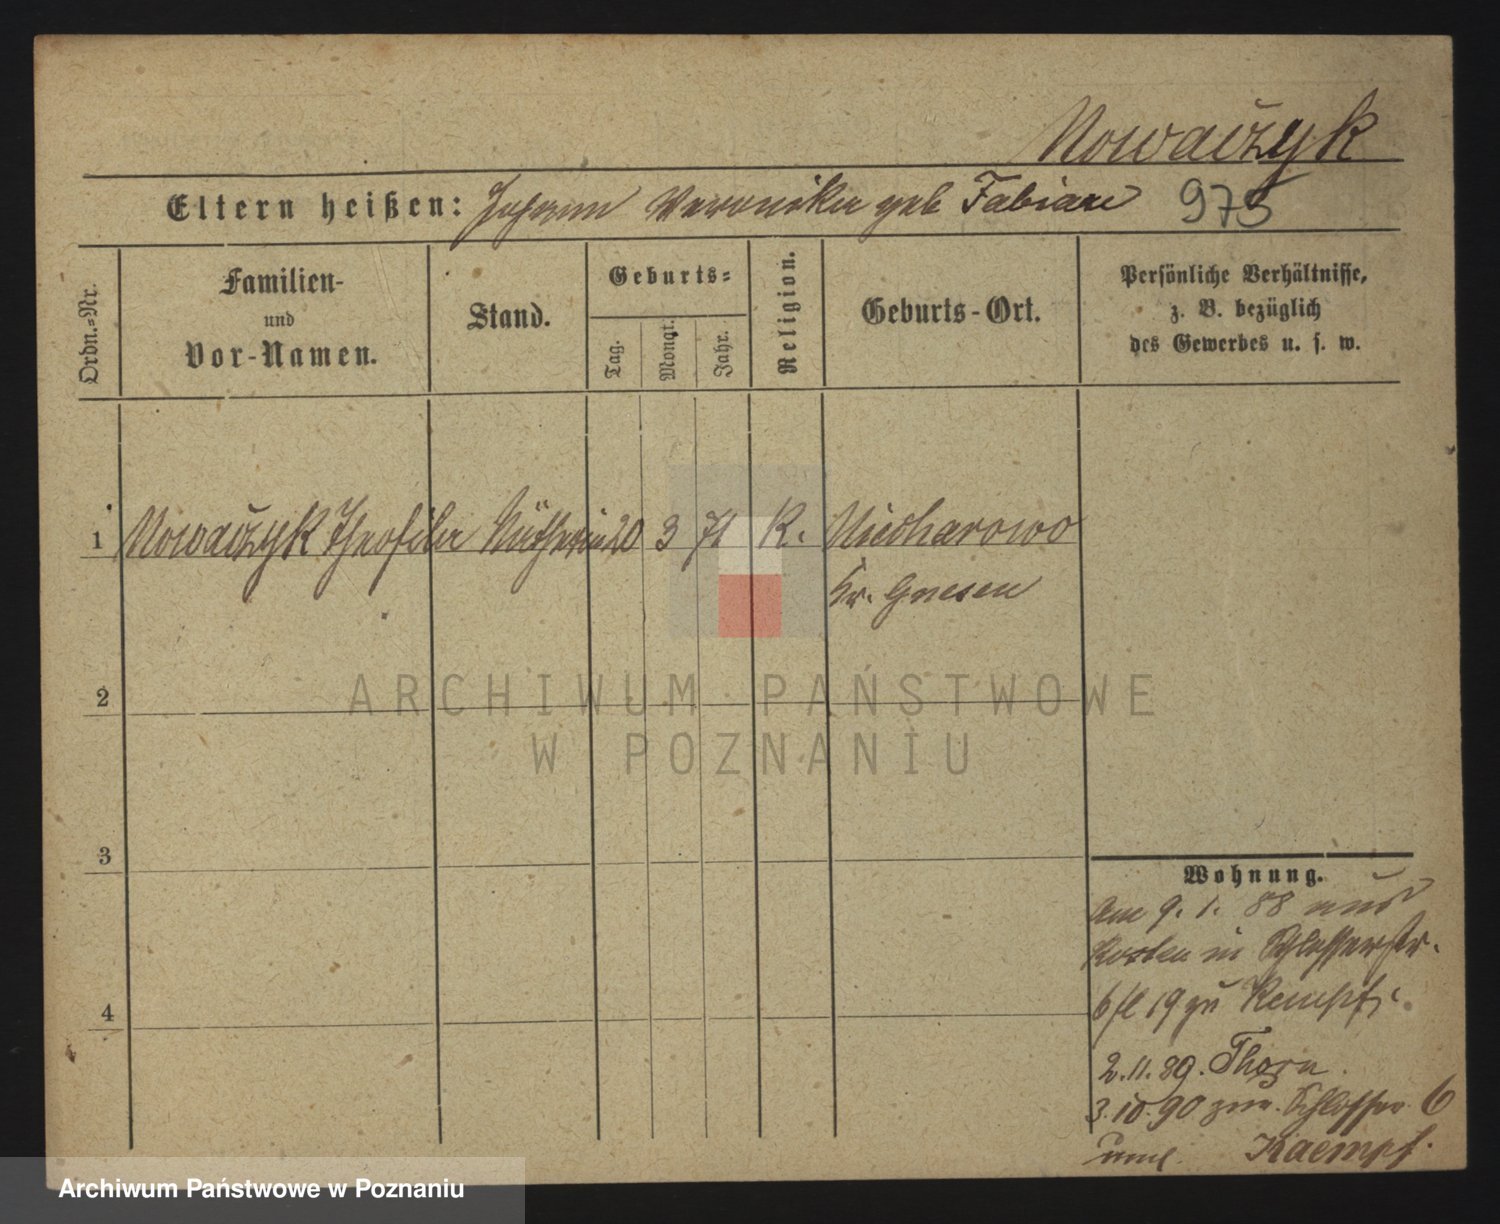 Nowaczyk
Eltern heißen: Johann Veronika geb Fabian 975
Ordn.=Nr.
Familien-
und
Vor-Namen.
Stand.
Geburts=
Tag.
Monat.
Jahr.
Religion.
Geburts-Ort.
Persönliche Verhältnisse,
z. B. bezüglich
des Gewerbes u. s. w.
1 Nowaczyk Theofila Nätherin 20 3 71 K. Niecharowo
Kr. Gnesen
2
3
4
Wohnung.
Am 9. 1. 88 aus
Kosten in Schlosserstr.
6 19 zu Kempf
2.11.89. Thorn.
3.10.90 zur. Schlosser. 6
Kaempf.
ARCHIWUM PAŃSTWOWE
W POZNANIU
Archiwum Państwowe w Poznaniu